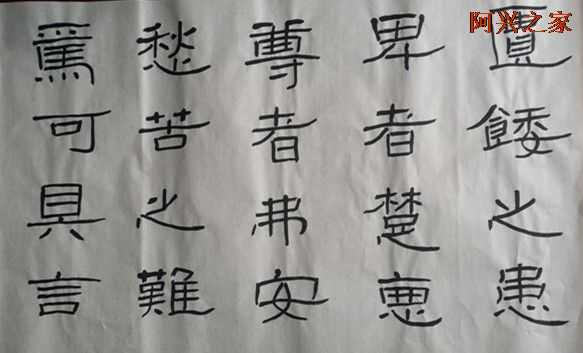 阿兴之家
匱餧之患
卑者楚惡
尊者弗安
愁苦之難
焉可具言